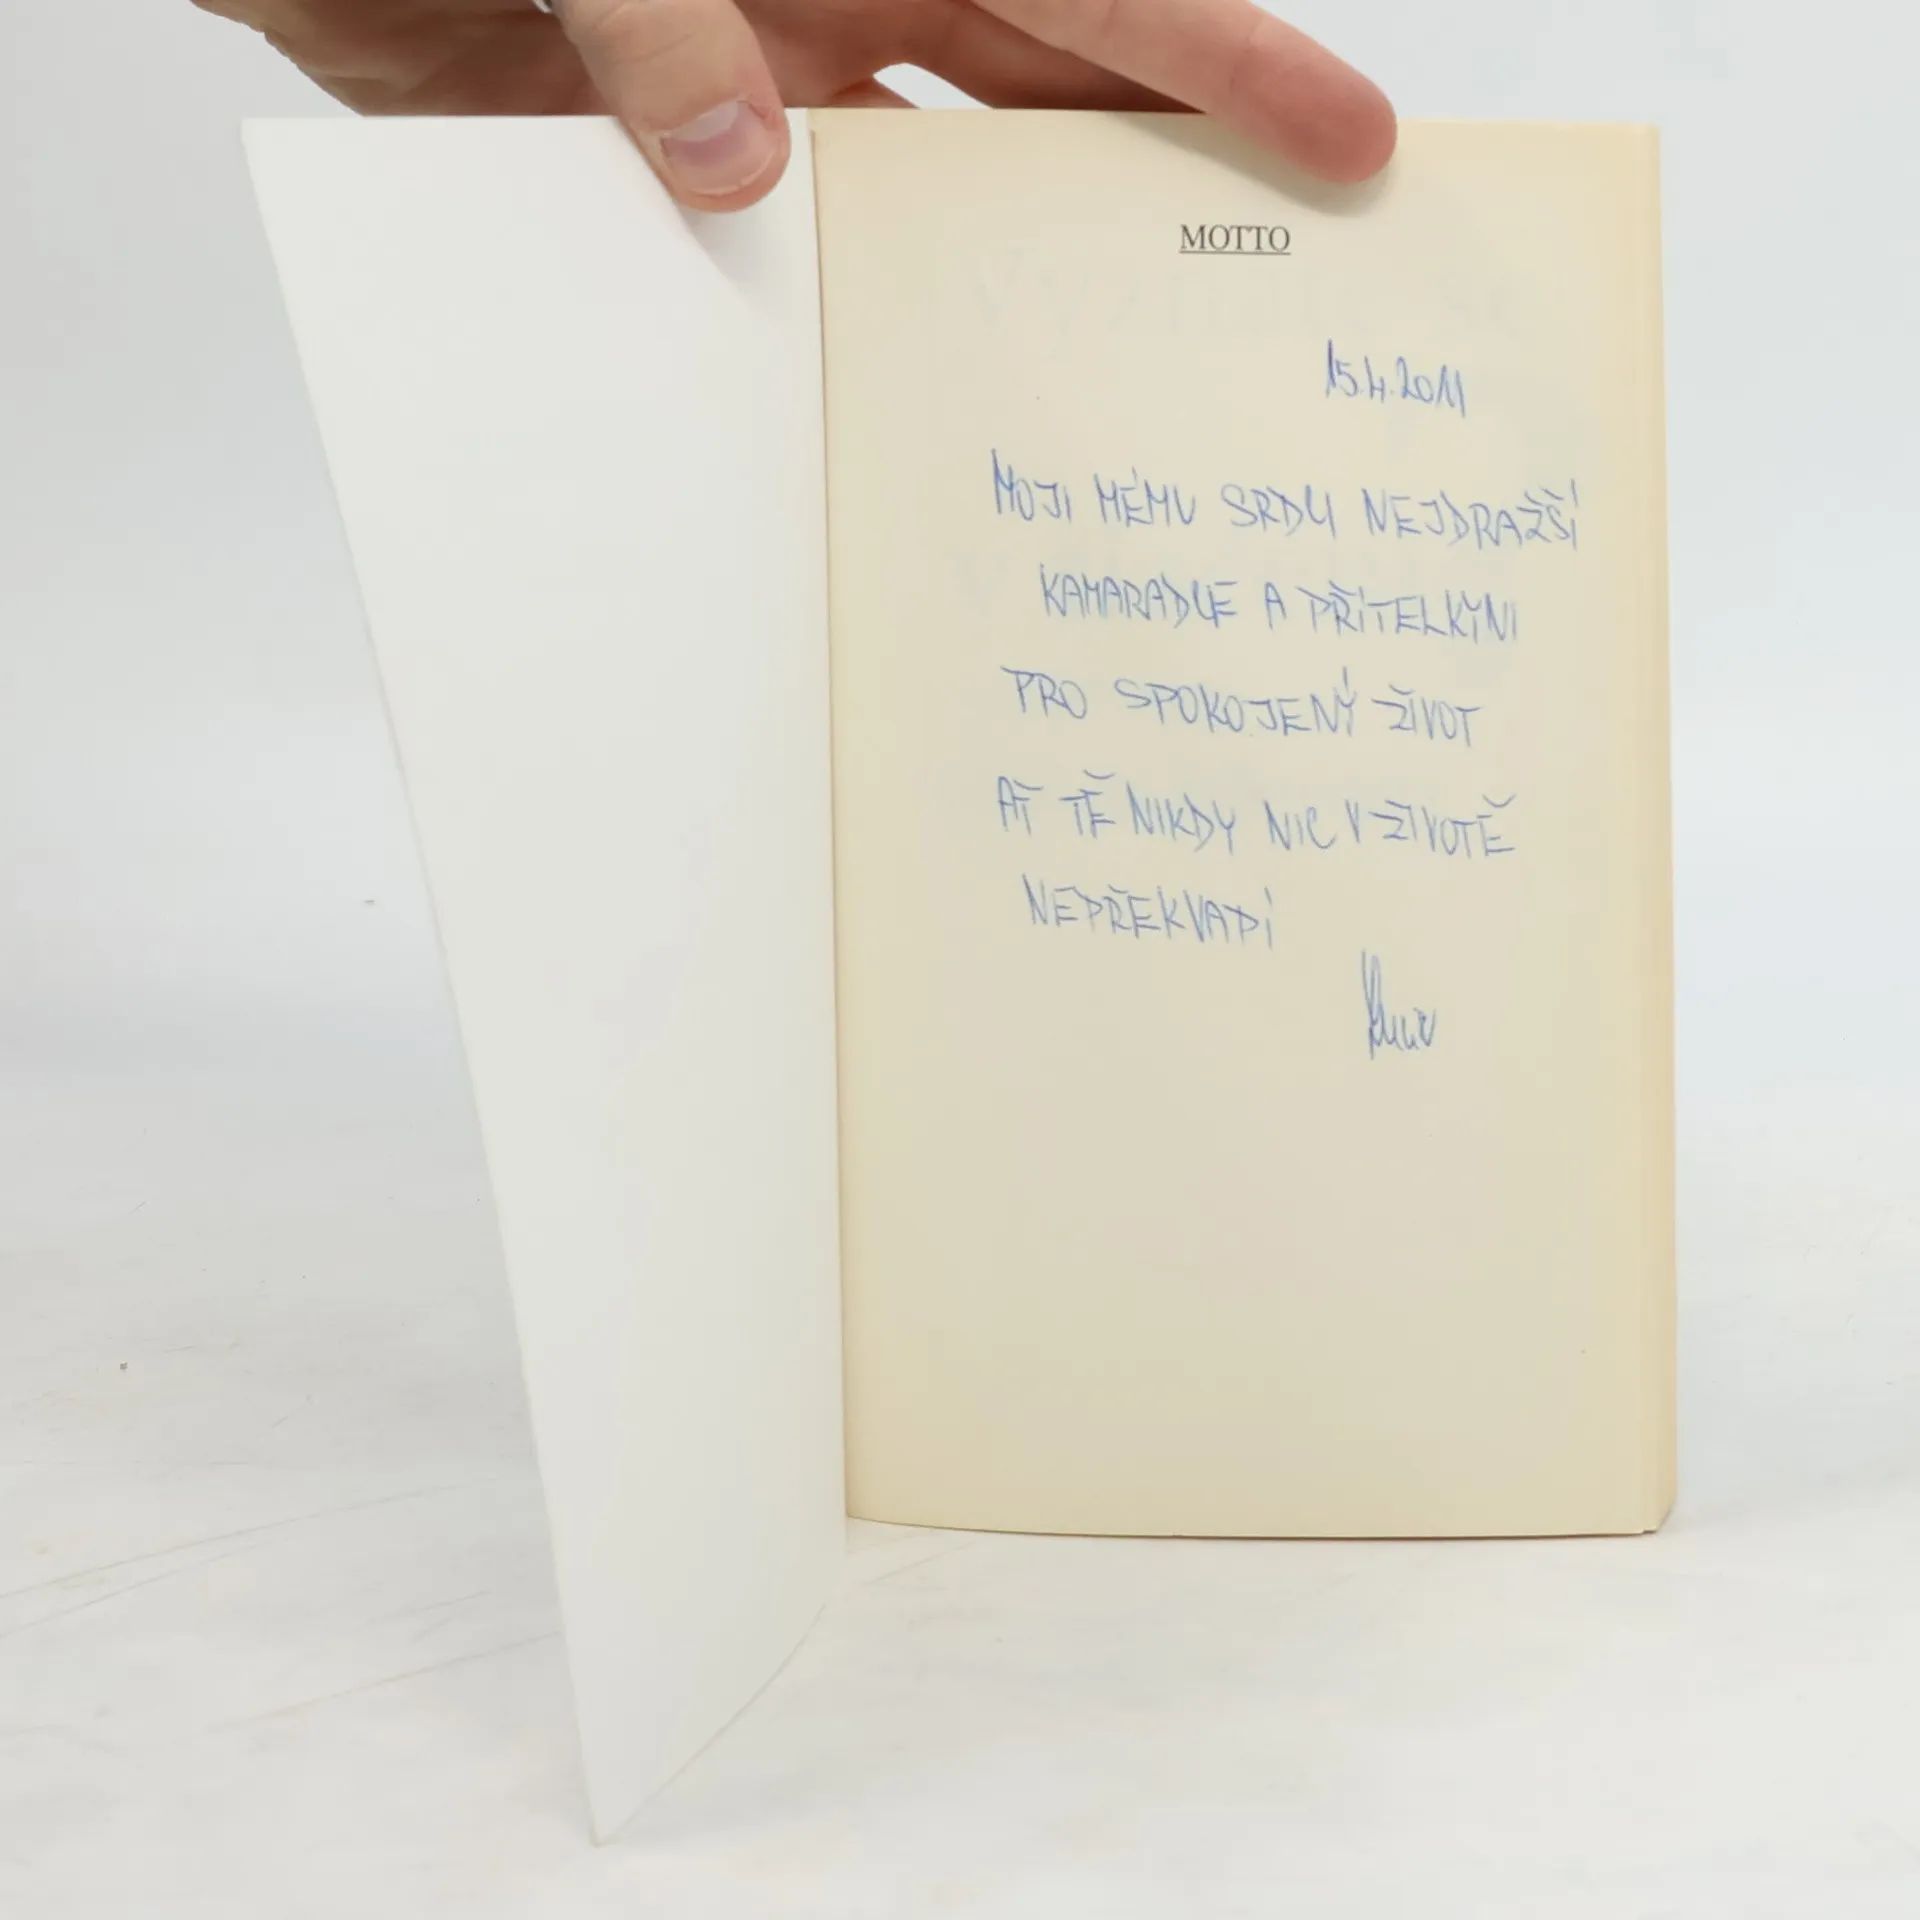 MOTTO
15.4.2011
MOJI MÉMU SRDCI NEJDRAŽŠÍ
KAMARADCE A PŘÍTELKYNI
PRO SPOKOJENÝ ŽIVOT
AŤ TĚ NIKDY NIC V ŽIVOTĚ
NEPŘEKVAPÍ